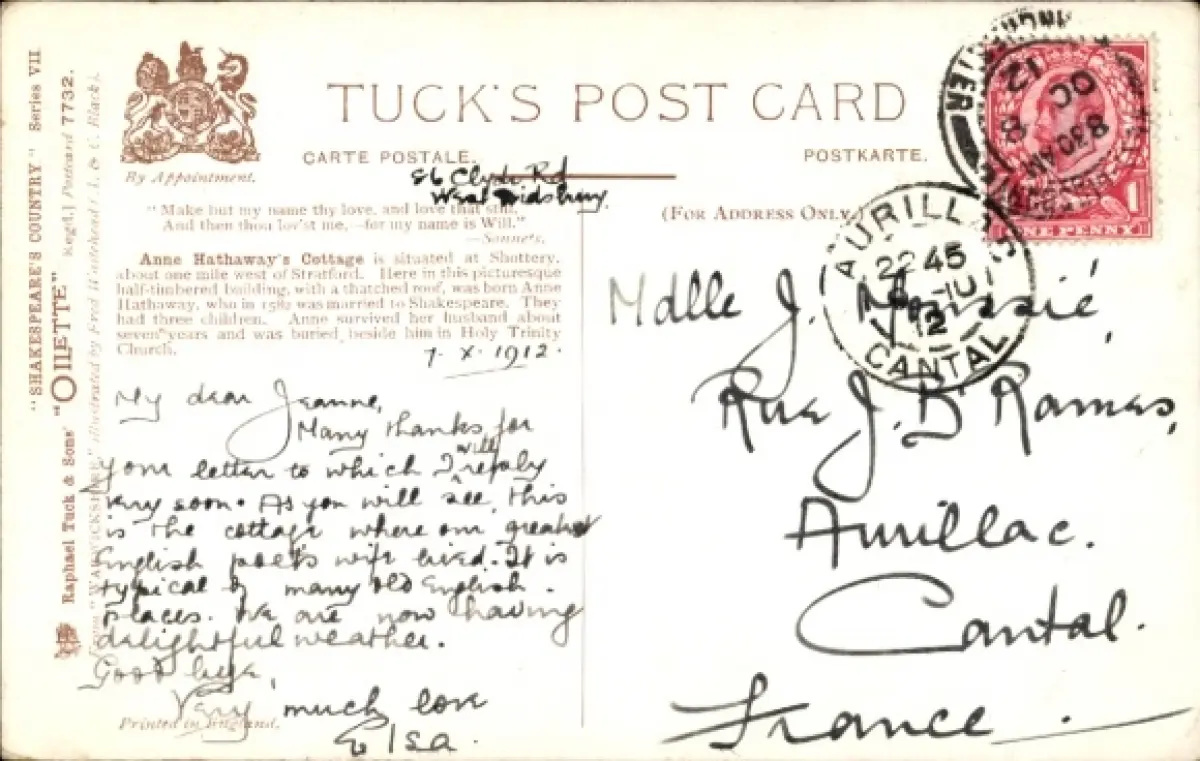 "SHAKESPEARE'S COUNTRY" Series VII
Raphael Tuck & Sons' "OILETTE" Regd.] Postcard 7732.
By Appointment.
TUCK'S POST CARD
CARTE POSTALE.
POSTKARTE.
86 Clyde Rd
West Didsbury.
(FOR ADDRESS ONLY.)
"Make but my name thy love, and love that still,
And then thou lov'st me,—for my name is Will."
—Sonnets.
Anne Hathaway's Cottage is situated at Shottery,
about one mile west of Stratford. Here in this picturesque
half-timbered building, with a thatched roof, was born Anne
Hathaway, who in 1582 was married to Shakespeare. They
had three children. Anne survived her husband about
seven years and was buried beside him in Holy Trinity
Church.
7. X. 1912.
My dear Jeanne,
Many thanks for
your letter to which I will reply
very soon. As you will see, this
is the cottage where our greatest
English poet's wife lived. It is
typical of many old English
places. We are now having
delightful weather.
Good bye,
Very much love
Elsa.
Printed in England.
8.30 AM
8 OC
12
ONE PENNY
AURILLAC
22 45
12
CANTAL
Mdlle J.
Rue J. B Rames,
Aurillac.
Cantal.
France.